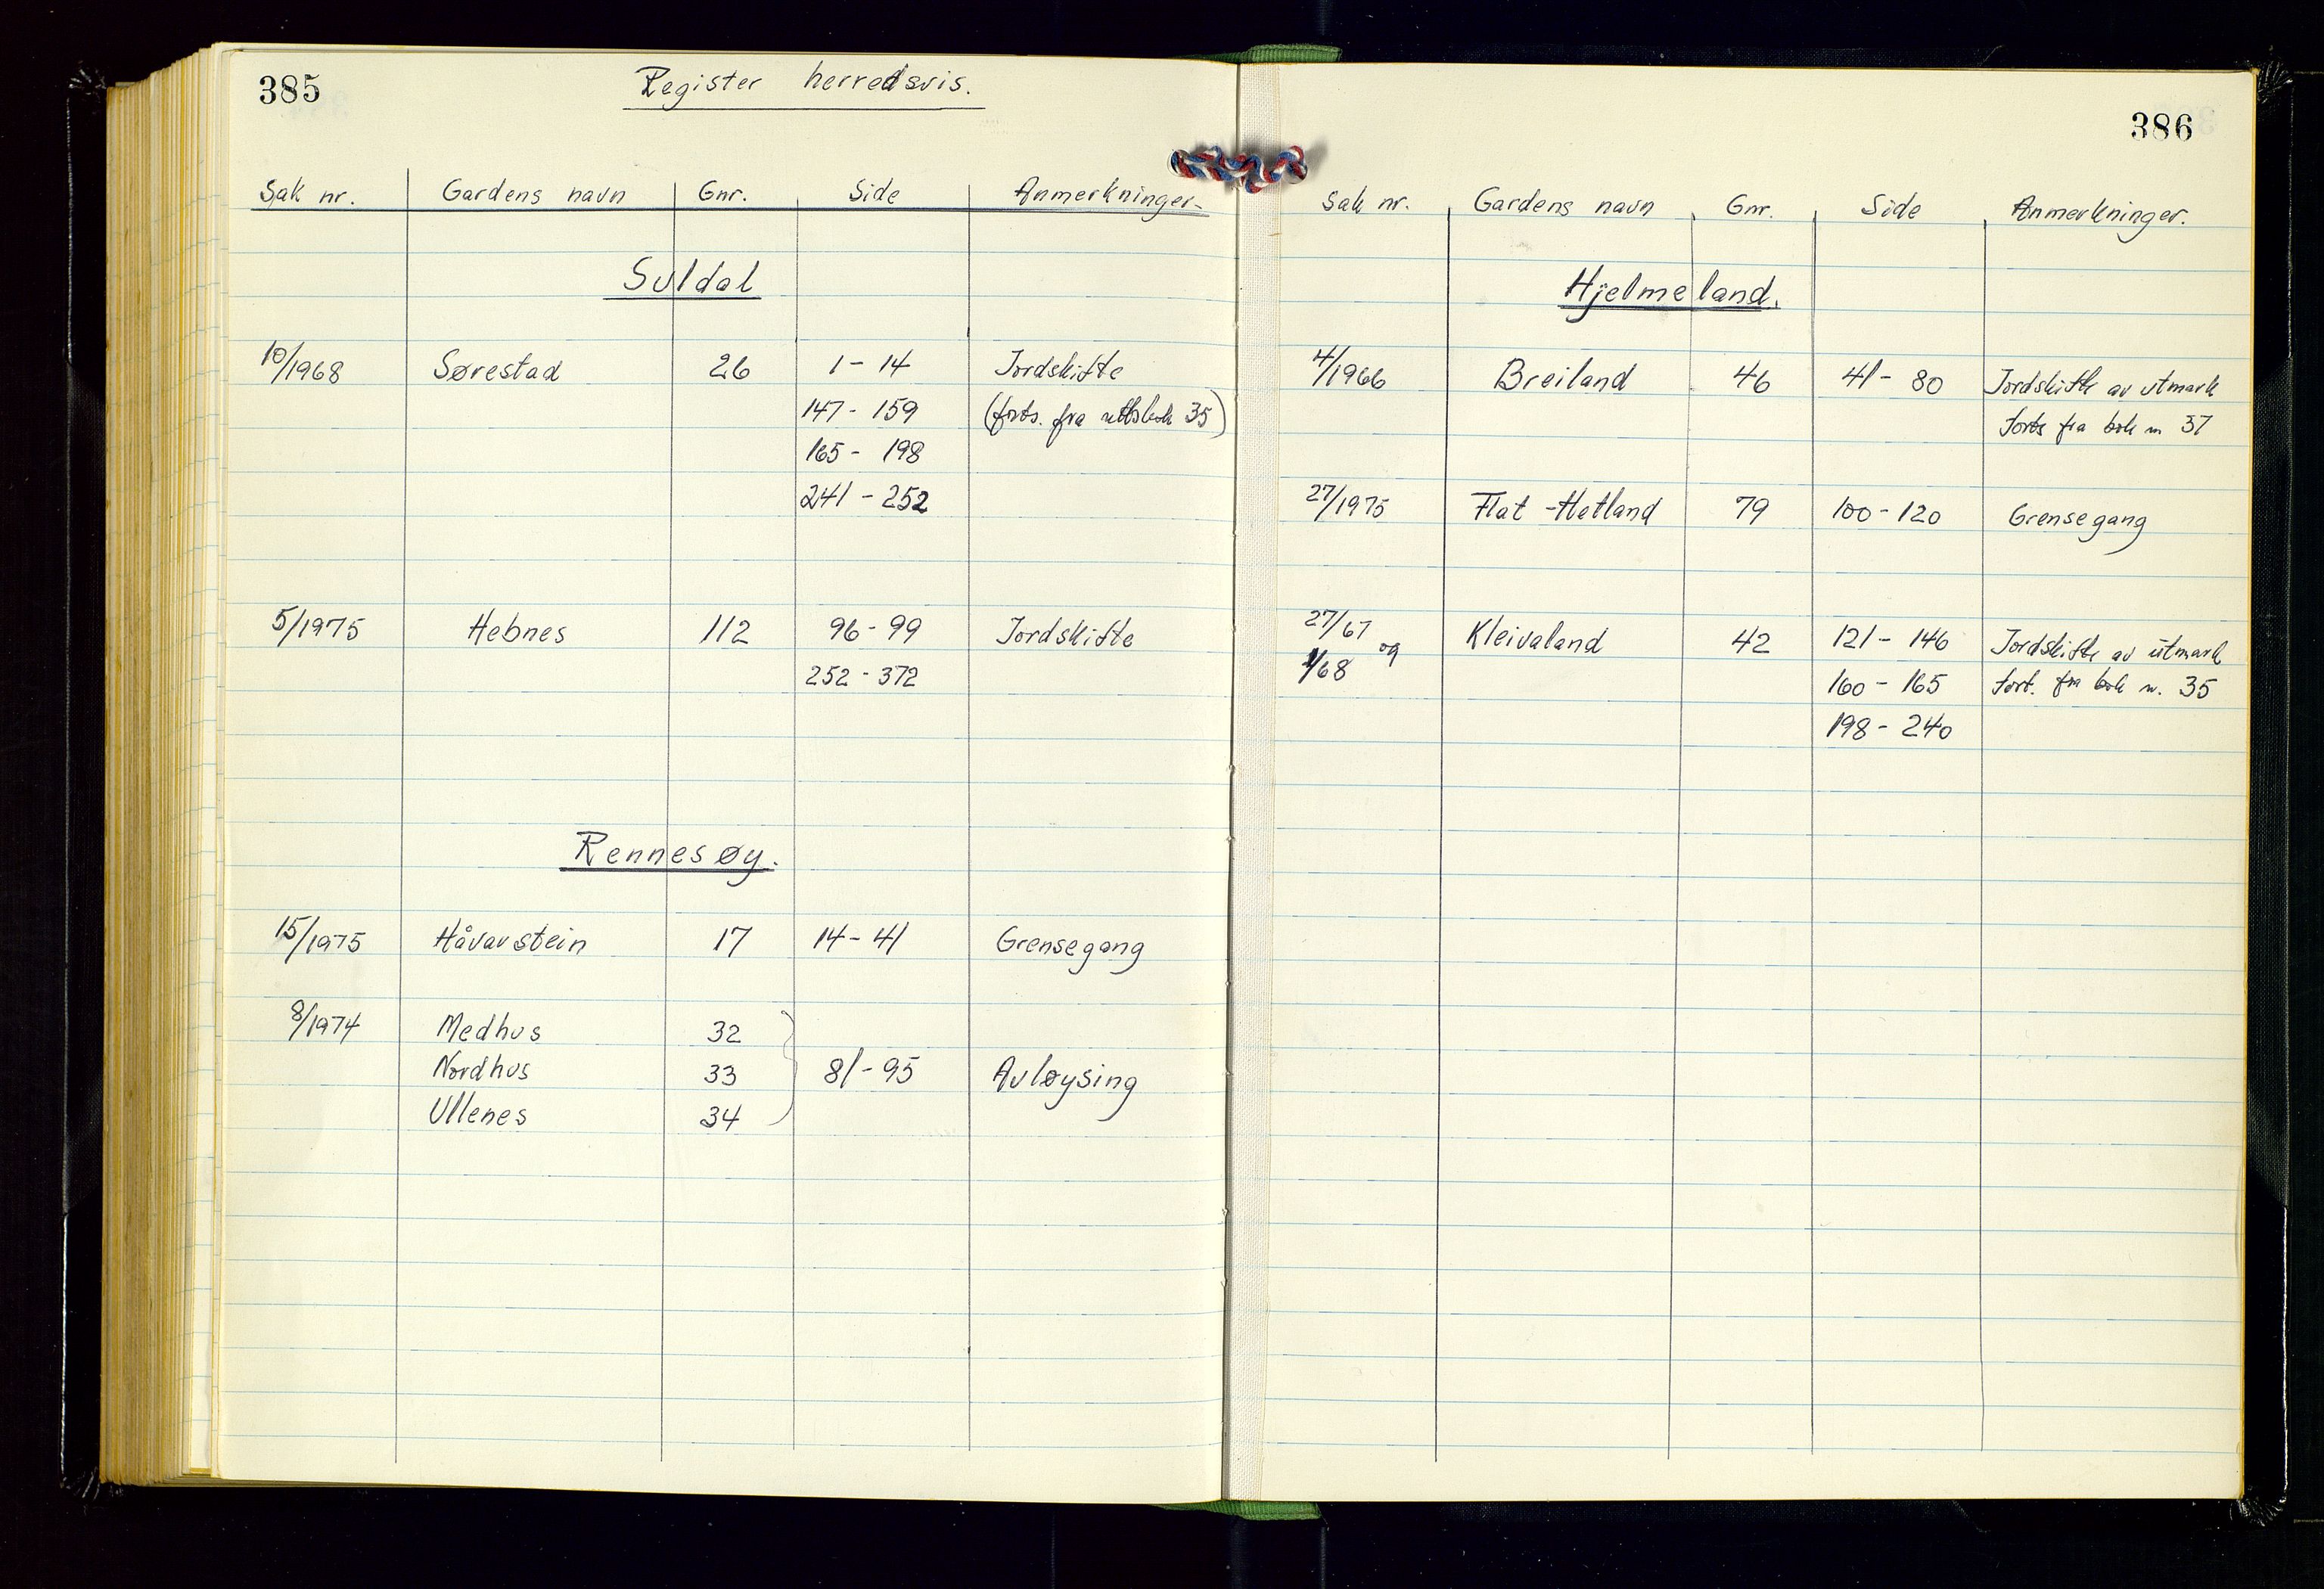 385
Register herredsvis.
Sak nr. Gardens navn Gnr. Side Anmerkninger.
Suldal
10/1968 Sørestad 26 1 - 14 Jordskifte
147 - 159 (forts. fra rettsbok 35)
165 - 198
241 - 252
5/1975 Hebnes 112 96 - 99 Jordskifte
252 - 372
Rennesøy.
15/1975 Håvarstein 17 14 - 41 Grensegang
8/1974 Medhus 32
Nordhus 33 81 - 95 Avløysing
Ullenes 34
386
Sak nr. Gardens navn Gnr. Side Anmerkninger.
Hjelmeland.
4/1966 Breiland 46 41 - 80 Jordskifte av utmark
forts fra bok nr 37
27/1975 Flat-Hetland 79 100 - 120 Grensegang
27/67 og Kleivaland 42 121 - 146 Jordskifte av utmark
1/68 160 - 165 fort. fra bok nr. 35
198 - 240